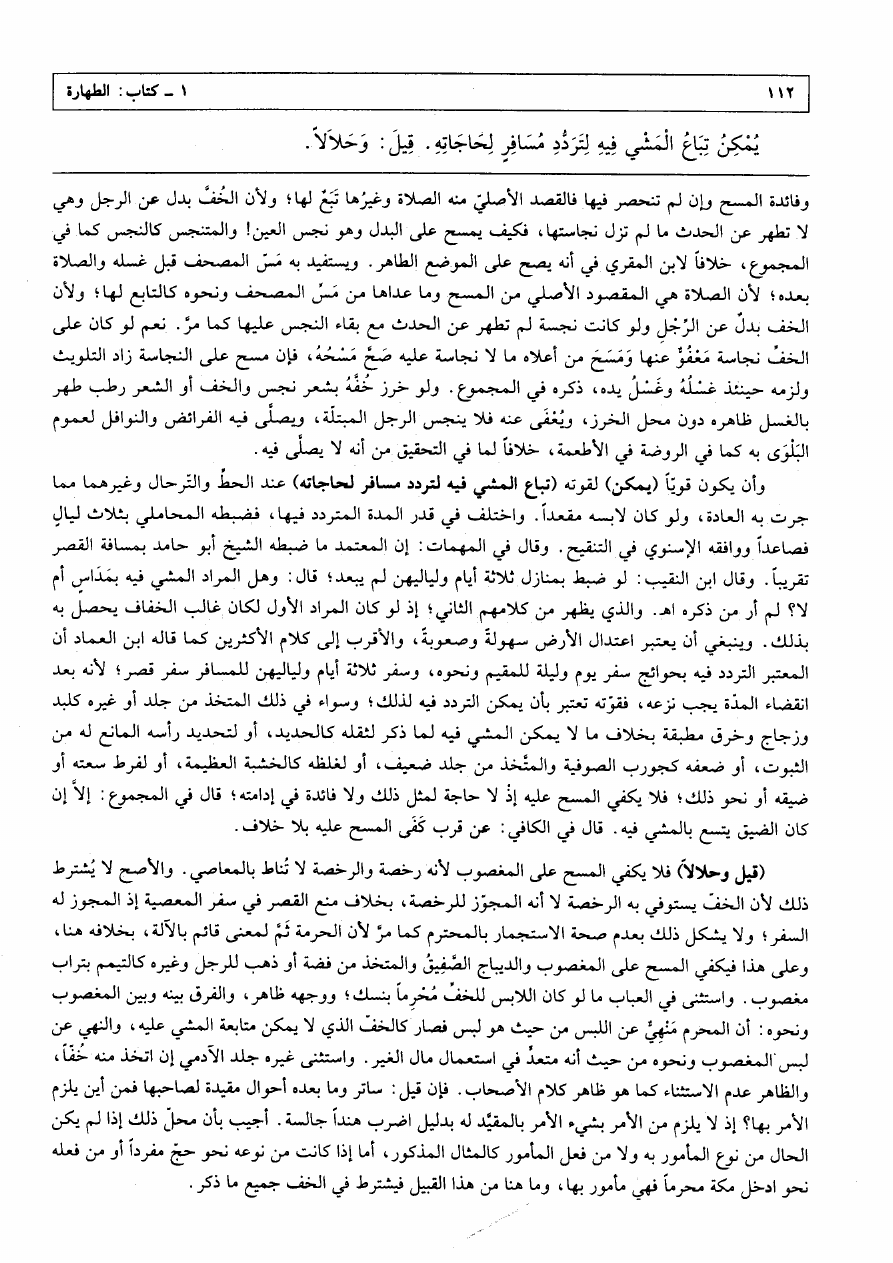 ١١٢
١ ـ كتاب: الطهارة
يُمْكِنُ تِبَاعُ الْمَشْيِ فِيهِ لِتَرَدُّدِ مُسَافِرٍ لِحَاجَاتِهِ. قِيلَ: وَحَلاَلاً.
وفائدة المسح وإن لم تنحصر فيها فالقصد الأصليّ منه الصلاة وغيرُها تَبَعٌ لها؛ ولأن الخُفَّ بدل عن الرجل وهي
لا تطهر عن الحدث ما لم تزل نجاستها، فكيف يمسح على البدل وهو نجس العين! والمتنجس كالنجس كما في
المجموع، خلافاً لابن المقري في أنه يصح على الموضع الطاهر. ويستفيد به مَسّ المصحف قبل غسله والصلاة
بعده؛ لأن الصلاة هي المقصود الأصلي من المسح وما عداها من مَسِّ المصحف ونحوه كالتابع لها؛ ولأن
الخف بدلٌ عن الرِّجْلِ ولو كانت نجسة لم تطهر عن الحدث مع بقاء النجس عليها كما مرَّ. نعم لو كان على
الخفِّ نجاسة مَعْفُوٌّ عنها وَمَسَحَ من أعلاه ما لا نجاسة عليه صَحَّ مَسْحُهُ، فإن مسح على النجاسة زاد التلويث
ولزمه حينئذ غسْلُهُ وغَسْلُ يده، ذكره في المجموع. ولو خرز خُفَّهُ بشعر نجس والخف أو الشعر رطب طهر
بالغسل ظاهره دون محل الخرز، ويُعْفَى عنه فلا ينجس الرجل المبتلّة، ويصلَّى فيه الفرائض والنوافل لعموم
البَلْوَى به كما في الروضة في الأطعمة، خلافاً لما في التحقيق من أنه لا يصلَّى فيه.
وأن يكون قويّاً (يمكن) لقوته (تباع المشي فيه لتردد مسافر لحاجاته) عند الحطِّ والتّرحال وغيرهما مما
جرت به العادة، ولو كان لابسه مقعداً. واختلف في قدر المدة المتردد فيها، فضبطه المحاملي بثلاث ليالٍ
فصاعداً ووافقه الإسنوي في التنقيح. وقال في المهمات: إن المعتمد ما ضبطه الشيخ أبو حامد بمسافة القصر
تقريباً. وقال ابن النقيب: لو ضبط بمنازل ثلاثة أيام ولياليهن لم يبعد؛ قال: وهل المراد المشي فيه بمَدَاسٍ أم
لا؟ لم أر من ذكره اهـ. والذي يظهر من كلامهم الثاني؛ إذ لو كان المراد الأول لكان غالب الخفاف يحصل به
بذلك. وينبغي أن يعتبر اعتدال الأرض سهولةً وصعوبةً، والأقرب إلى كلام الأكثرين كما قاله ابن العماد أن
المعتبر التردد فيه بحوائج سفر يوم وليلة للمقيم ونحوه، وسفر ثلاثة أيام ولياليهن للمسافر سفر قصر؛ لأنه بعد
انقضاء المدّة يجب نزعه، فقوّته تعتبر بأن يمكن التردد فيه لذلك؛ وسواء في ذلك المتخذ من جلد أو غيره كلبد
وزجاج وخرق مطبقة بخلاف ما لا يمكن المشي فيه لما ذكر لثقله كالحديد، أو لتحديد رأسه المانع له من
الثبوت، أو ضعفه كجورب الصوفية والمتّخذ من جلد ضعيف، أو لغلظه كالخشبة العظيمة، أو لفرط سعته أو
ضيقه أو نحو ذلك؛ فلا يكفي المسح عليه إذْ لا حاجة لمثل ذلك ولا فائدة في إدامته؛ قال في المجموع: إلاَّ إن
كان الضيق يتسع بالمشي فيه. قال في الكافي: عن قرب كَفَى المسح عليه بلا خلاف.
(قيل وحلالاً) فلا يكفي المسح على المغصوب لأنه رخصة والرخصة لا تُناط بالمعاصي. والأصح لا يُشترط
ذلك لأن الخفّ يستوفي به الرخصة لا أنه المجوّز للرخصة، بخلاف منع القصر في سفر المعصية إذ المجوز له
السفر؛ ولا يشكل ذلك بعدم صحة الاستجمار بالمحترم كما مرَّ لأن الحرمة ثَمَّ لمعنى قائم بالآلة، بخلافه هنا،
وعلى هذا فيكفي المسح على المغصوب والديباج الصَّفِيقُ والمتخذ من فضة أو ذهب للرجل وغيره كالتيمم بتراب
مغصوب. واستثنى في العباب ما لو كان اللابس للخفِّ مُحْرِماً بنسك؛ ووجهه ظاهر، والفرق بينه وبين المغصوب
ونحوه: أن المحرم مَنْهِيٌّ عن اللبس من حيث هو لبس فصار كالخفّ الذي لا يمكن متابعة المشي عليه، والنهي عن
لبس المغصوب ونحوه من حيث أنه متعدٍّ في استعمال مال الغير. واستثنى غيره جلد الآدمي إن اتخذ منه خُفّاً،
والظاهر عدم الاستثناء كما هو ظاهر كلام الأصحاب. فإن قيل: ساتر وما بعده أحوال مقيدة لصاحبها فمن أين يلزم
الأمر بها؟ إذ لا يلزم من الأمر بشيء الأمر بالمقيَّد له بدليل اضرب هنداً جالسة. أجيب بأن محلّ ذلك إذا لم يكن
الحال من نوع المأمور به ولا من فعل المأمور كالمثال المذكور، أما إذا كانت من نوعه نحو حجّ مفرداً أو من فعله
نحو ادخل مكة محرماً فهي مأمور بها، وما هنا من هذا القبيل فيشترط في الخف جميع ما ذكر.